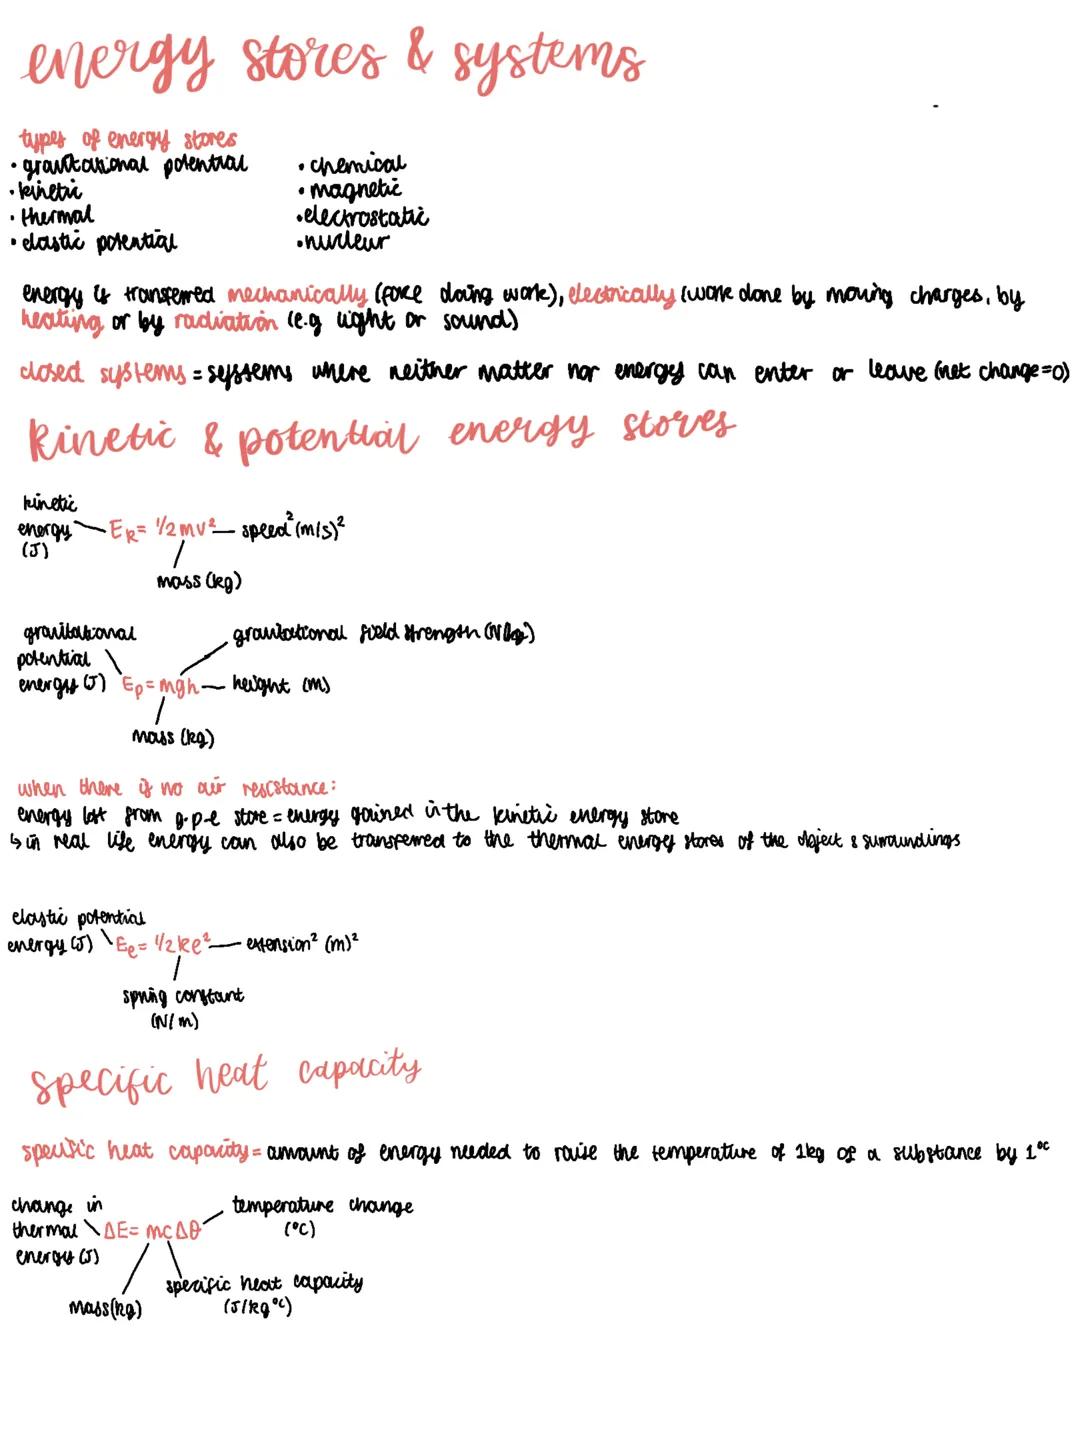 energy stores & systems
types of energy stores
• gravitational potential
• kinetic
• thermal
• elastic potential
• chemical
• magnetic
• electrostatic
• nuclear
energy is transferred mechanically (force doing work), electrically (work done by moving charges, by
heating or by radiation (e.g light or sound)
closed systems = systems where neither matter nor energy can enter or leave (net change=0)
kinetic & potential energy stores
kinetic
energy
(J)
Ek= 1/2mv²
speed² (m/s)²
mass (kg)
gravitational
potential
energy (J)
gravitational field strength (N/kg)
Ep= mgh
height (m)
mass (kg)
when there is no air resistance:
energy lost from g.p.e store = energy gained in the kinetic energy store
↳ in real life energy can also be transferred to the thermal energy stores of the object & surroundings
elastic potential
energy (J)
Ee= 1/2ke²
extension² (m)²
spring constant
(N/m)
specific heat capacity
specific heat capacity = amount of energy needed to raise the temperature of 1kg of a substance by 1°C
change in
thermal
energy (J)
ΔE= mcΔθ
temperature change
(°C)
specific heat capacity
(J/kg°C)
mass(kg)